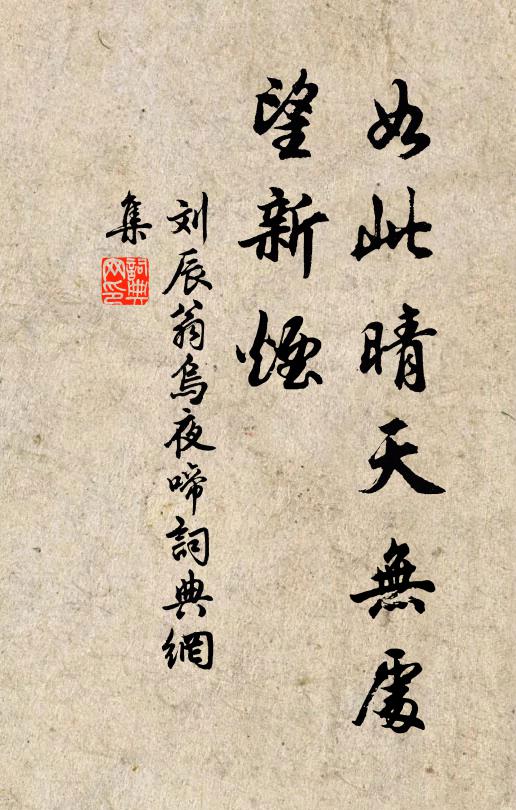 如此晴天無處
望新煙
刘辰翁烏夜啼詞典網
集
詞典
网印